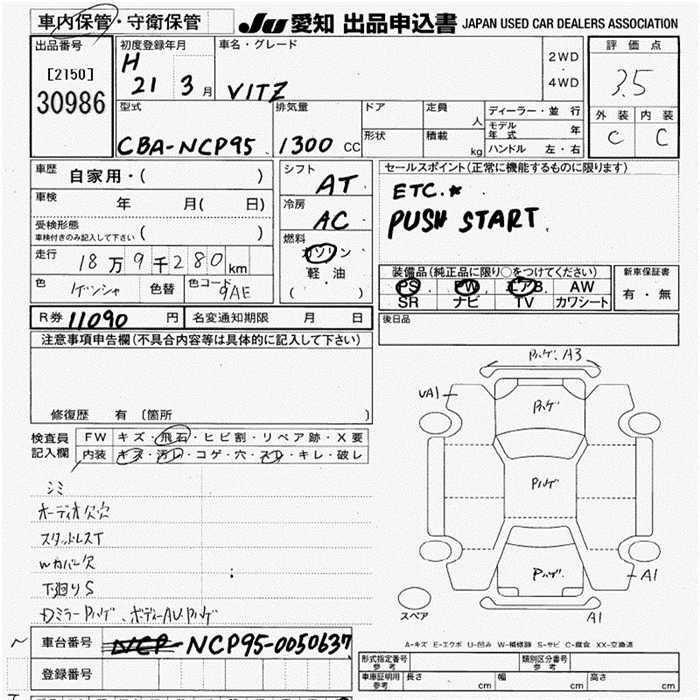 車内保管・守衛保管
JU 愛知 出品申込書 JAPAN USED CAR DEALERS ASSOCIATION
出品番号
[2150]
30986
初度登録年月
H 21 3月
車名・グレード
VITZ
2WD
・
4WD
評価点
3.5
外装 内装
C C
型式
CBA-NCP95
排気量
1300 CC
ドア
形状
定員 人
積載 kg
ディーラー・並行
モデル年式 年
ハンドル 左・右
車歴 自家用・( )
車検 年 月( 日)
受検形態
車検付きのみ記入して下さい ( )
走行 18万9千280km
色 色替 色コード 9AE
シフト
AT
冷房
AC
燃料
ガソリン
軽油
( )
セールスポイント(正常に機能するものに限ります)
ETC.*
PUSH START.
装備品(純正品に限り○をつけてください)
PS PW エアB AW
SR ナビ TV カワシート
新車保証書
有・無
後日品
R券 11090 円 名変通知期限 月 日
注意事項申告欄(不具合内容等は具体的に記入して下さい)
修復歴 有 〔箇所 〕
検査員記入欄
FW キズ・飛石・ヒビ割・リペア跡・X要
内装 キズ・汚レ・コゲ・穴・スレ・キレ・破レ
シミ
オーディオ欠欠
スタッドレスT
Wカバー欠
下廻りS
Dミラーハゲ、ボディーAUハゲ
ハゲ:A3
UA1
ハゲ
ハゲ
ハゲ
A1
A1
スペア
A-キズ E-エクボ U-凹み W-補修跡 S-サビ C-腐食 XX-交換済
車台番号 NCP NCP95-0050637
登録番号
形式指定番号 参考
類別区分番号 参考
車庫証明用 参考 長さ cm 幅 cm 高さ cm